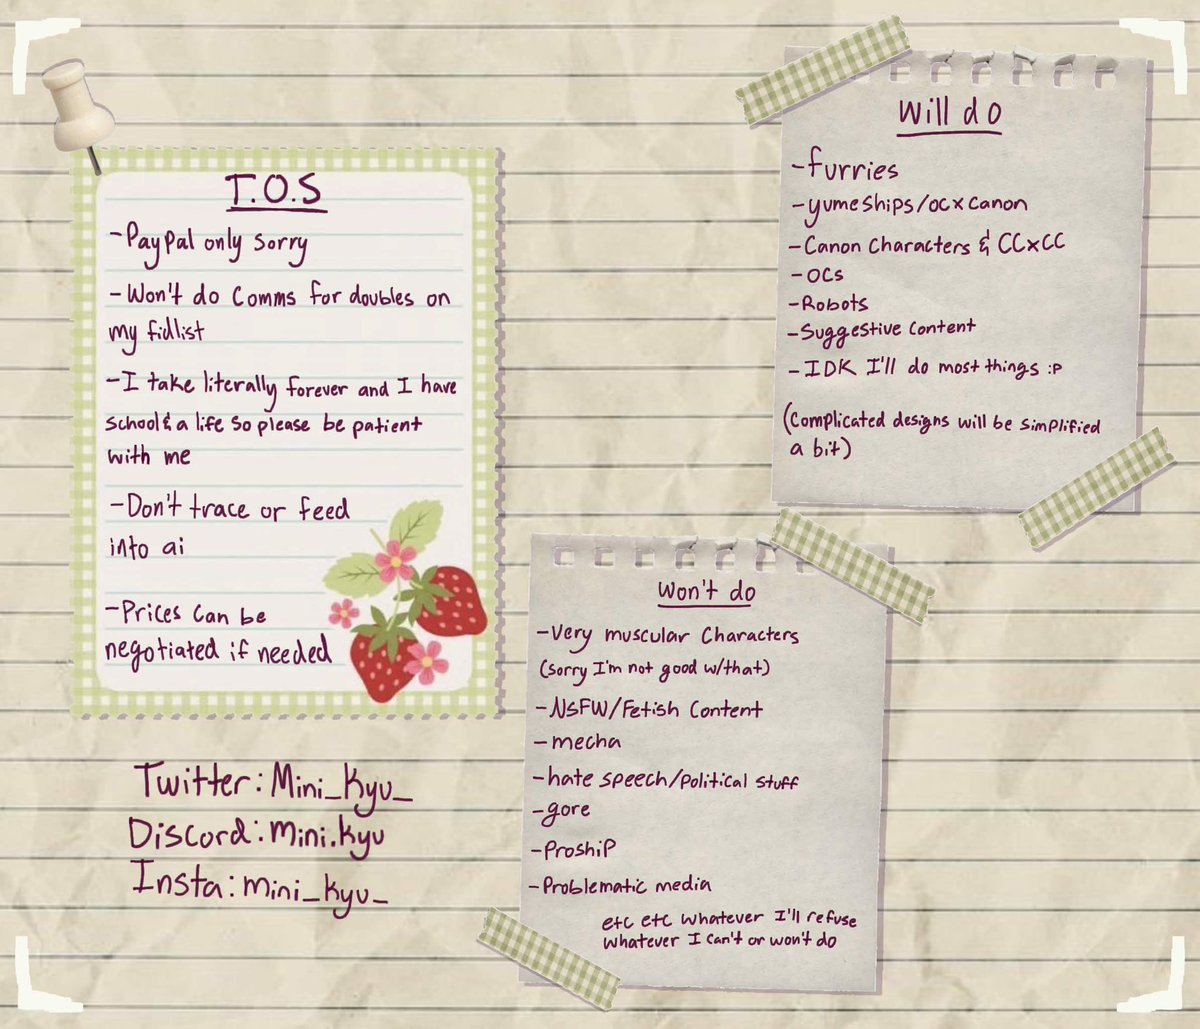 T.O.S
-PayPal only sorry
-Won't do Comms for doubles on
my fidlist
-I take literally forever and I have
school & a life so please be patient
with me
-Don't trace or feed
into ai
-Prices can be
negotiated if needed
Twitter: Mini_Kyu_
Discord: mini.kyu
Insta: mini_kyu_
Will do
-furries
-yumeships/ocxcanon
-Canon Characters & CCxCC
-OCs
-Robots
-Suggestive content
-IDK I'll do most things :P
(Complicated designs will be simplified
a bit)
Won't do
-Very muscular Characters
(sorry I'm not good w/that)
-NSFW/Fetish Content
-mecha
-hate speech/political stuff
-gore
-Proship
-Problematic media
etc etc whatever I'll refuse
whatever I can't or won't do